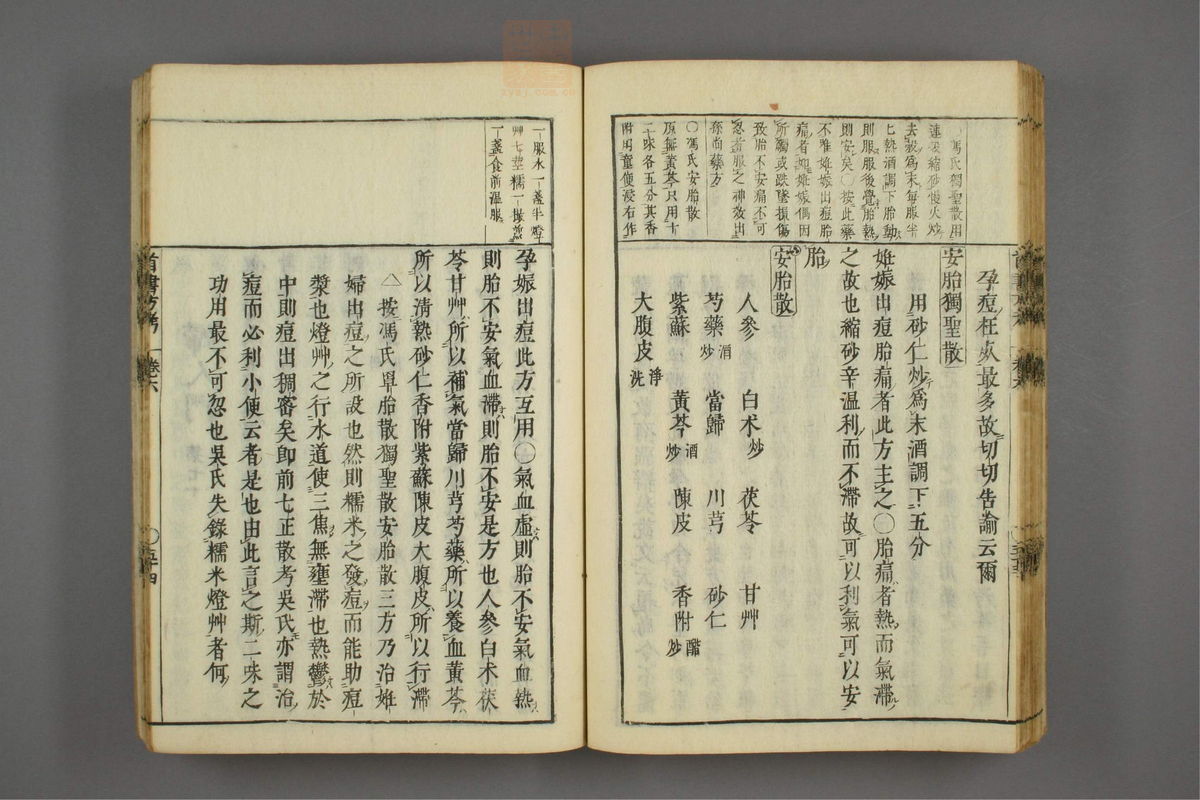 ○馮氏獨聖散用
連殼縮砂慢火炒
去殼爲末每服半
匕熱酒調下胎動
則服服後覺胎熱
則安矣○按此藥
不唯姙娠出痘胎
痛者如姙娠偶因
所觸或跌墜損傷
致胎不安痛不可
忍者服之神效出
孫尚藥方
○馮氏安胎散
原無黃芩只用十
二味各五分其香
附用童便浸右作
孕痘枉夭最多故切切告諭云爾
安胎獨聖散
用砂仁炒爲末酒調下五分
姙娠出痘胎痛者此方主之○胎痛者熱而氣滯
之故也縮砂辛温利而不滯故可以利氣可以安
胎
安胎散
人參 白朮炒 茯苓 甘艸
芍藥酒炒 當歸 川芎 砂仁
紫蘇 黃芩酒炒 陳皮 香附醋炒
大腹皮淨洗
一服水一盞半燈
艸七莖糯一撮煎
一盞食前溫服
孕娠出痘此方互用○氣血虛則胎不安氣血熱
則胎不安氣血滯則胎不安是方也人參白朮茯
苓甘艸所以補氣當歸川芎芍藥所以養血黃芩
所以清熱砂仁香附紫蘇陳皮大腹皮所以行滯
按馮氏罩胎散獨聖散安胎散三方乃治姙
婦出痘之所設也然則糯米之發痘而能助痘
漿也燈艸之行水道使三焦無壅滯也熱鬱於
中則痘出稠密矣即前七正散考吳氏亦謂治
痘而必利小便云者是也由此言之斯二味之
功用最不可忽也吳氏失錄糯米燈艸者何
首書方考 卷六
五十四